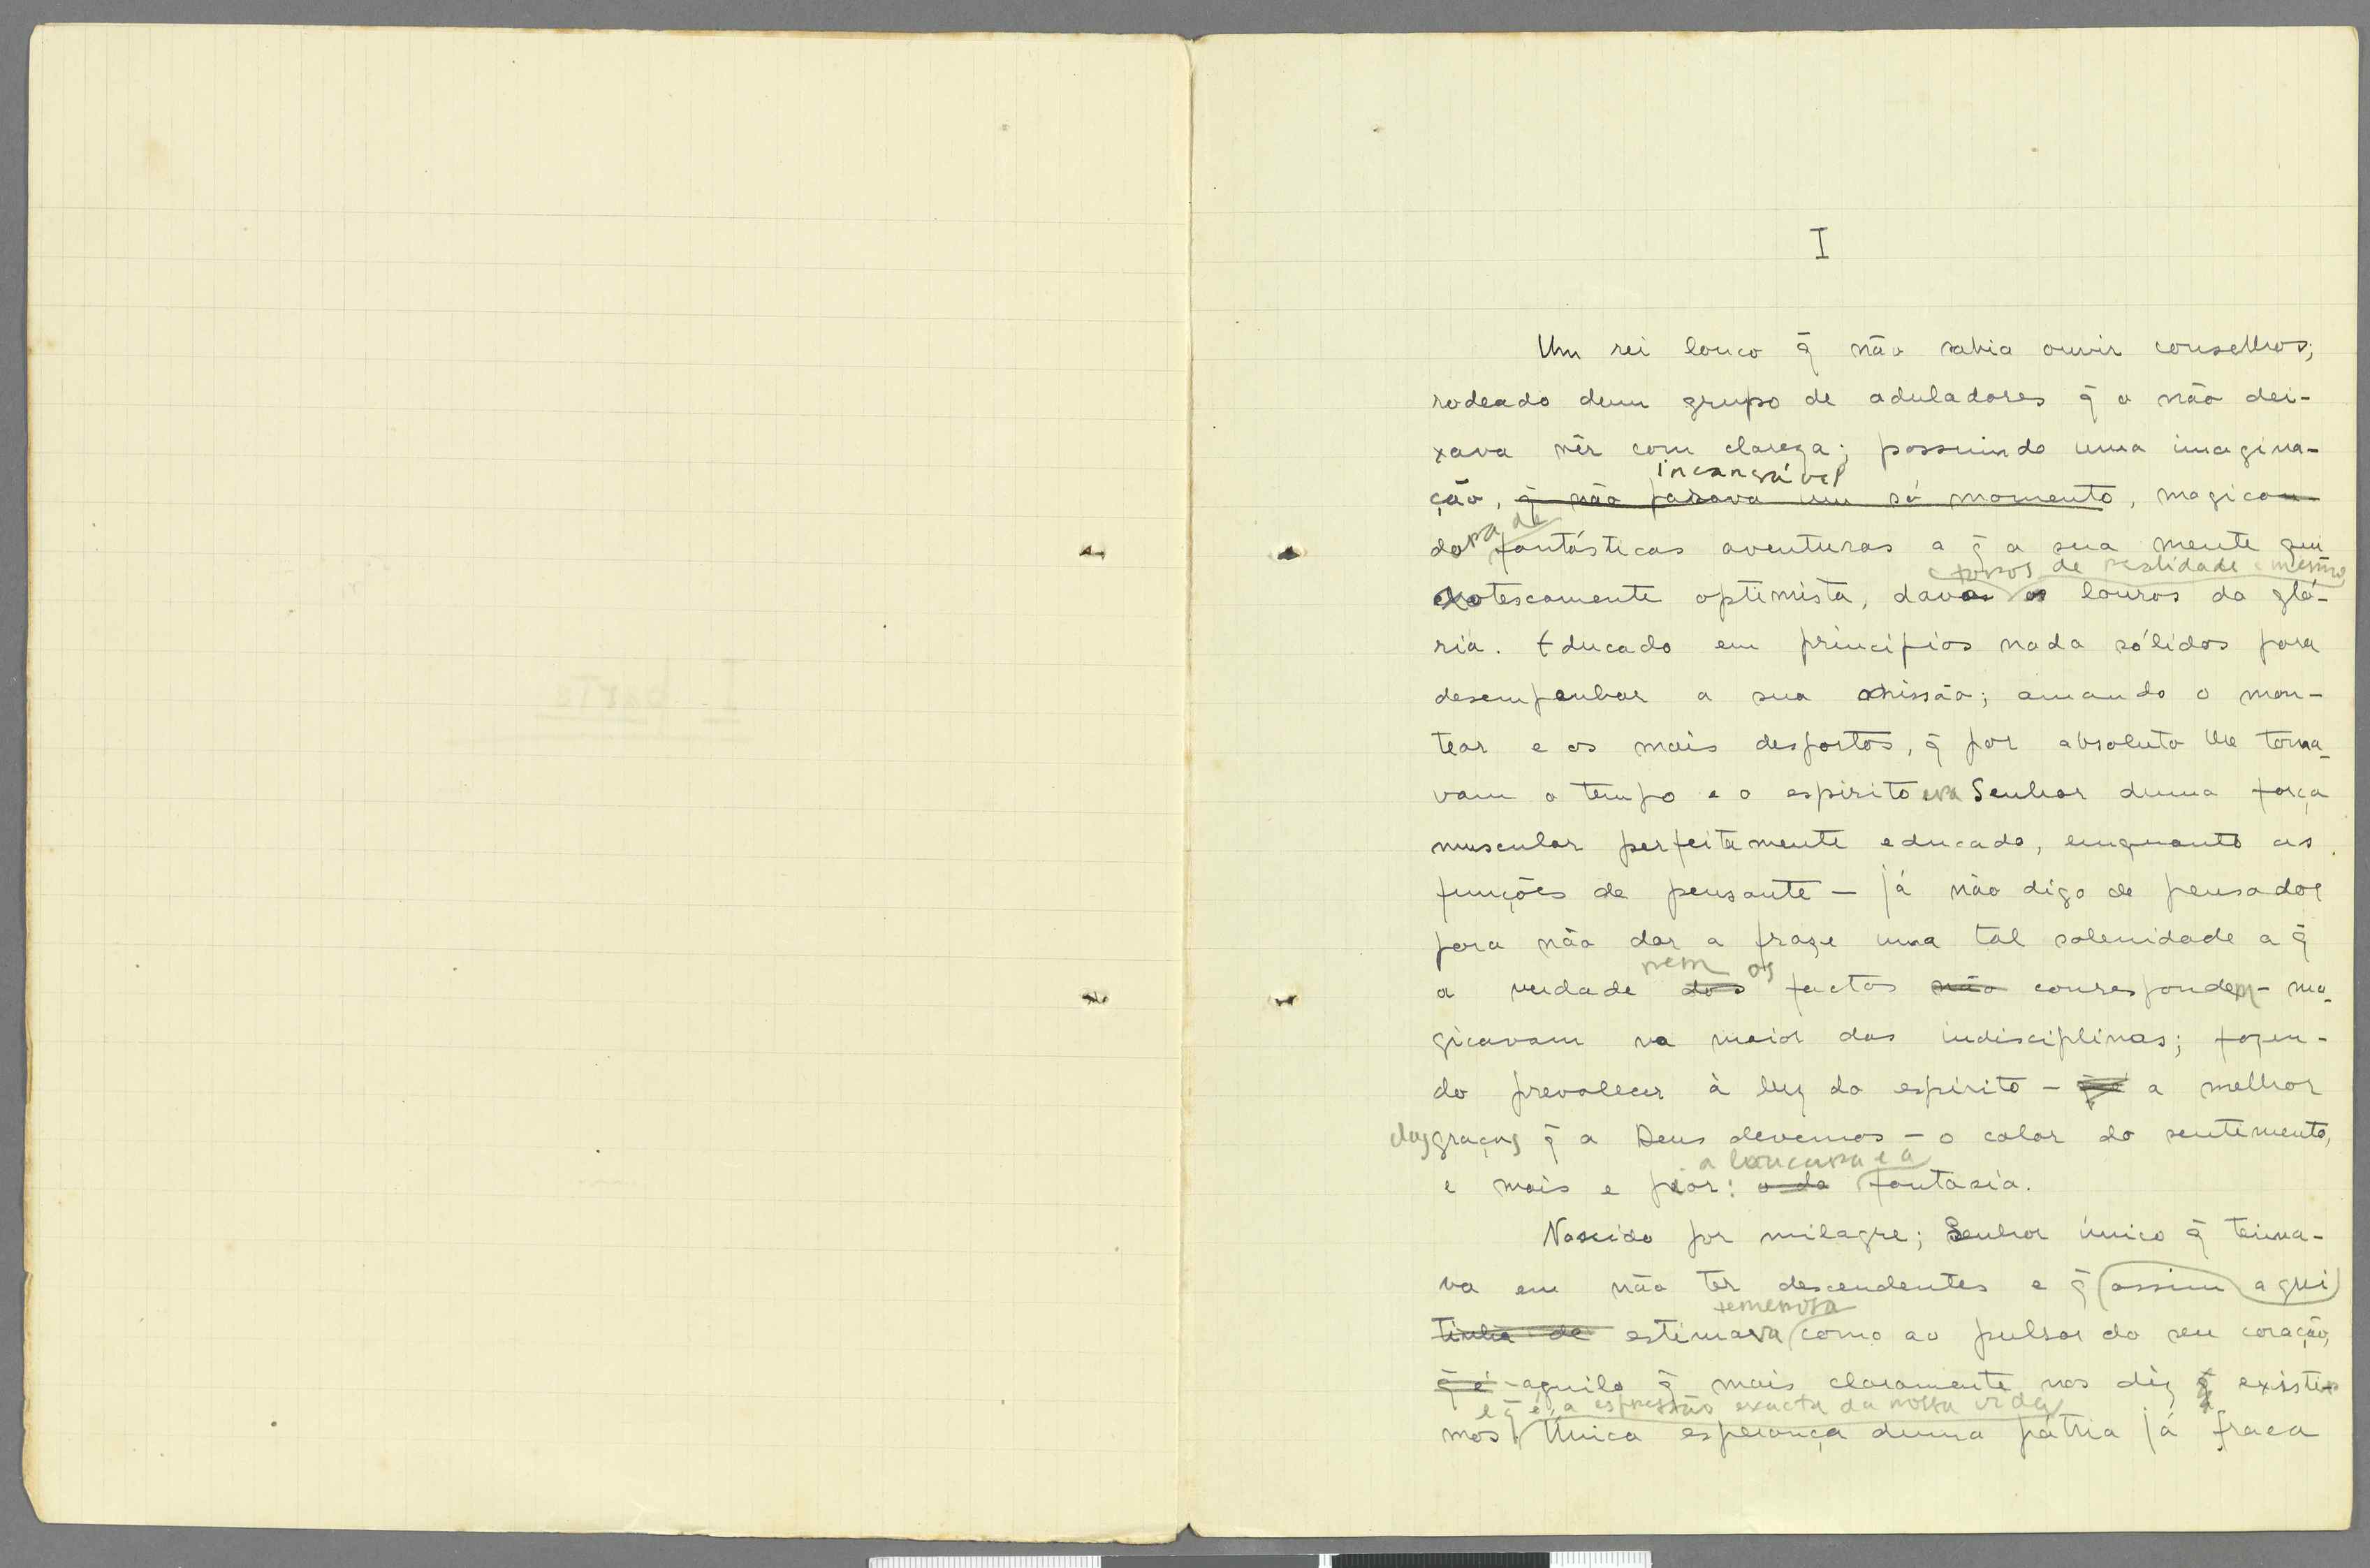 I
Um rei louco q̃ não sabia ouvir conselhos;
rodeado dum grupo de aduladores q̃ o não dei-
xava vêr com clareza; possuindo uma imagina-
incansável
ção, q̃ não parava um só momento, magican
do va de fantásticas aventuras a q̃ a sua mente qui
foros de realidade e mesmo
xotescamente optimista, dava os louros da gló-
ria. Educado em principios nada sólidos para
desempenhar a sua missão; amando o mon-
tear e os mais desportos, q̃ por absoluto lhe toma-
vam o tempo e o espirito era Senhor duma força
muscular perfeitamente educada, emquanto as
funções de pensante - já não digo de pensador
para não dar a fraze uma tal solenidade a q̃
nem os
a verdade dos factos não correspondem - ma-
gicavam na maior das indisciplinas; fazen-
do prevalecer à luz do espirito - q̃ é a melhor
das graças q̃ a Deus devemos - o calor do sentimento,
a loucura e a
e mais e peor: o da fantasia.
Nascido por milagre; Senhor único q̃ teima-
va em não ter descendentes e q̃ assim a grei
temerosa
tinha de estimava como ao pulsar do seu coração,
q̃ é - aquilo q̃ mais claramente nos diz q̃ existi-
e q̃ é a espressão exacta da nossa vida
mos. Única esperança duma pátria já fraca
I parte